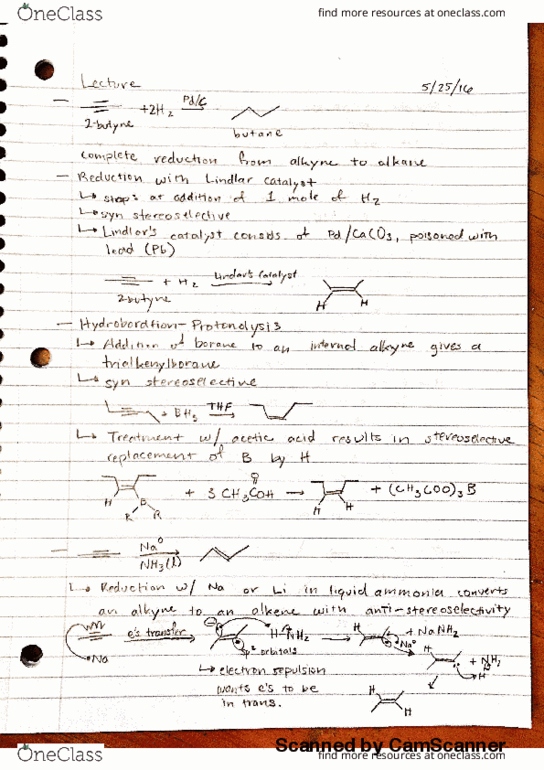 OneClass
find more resources at oneclass.com
Lecture 5/25/16
+2H2 Pd/C
2-butyne
butane
complete reduction from alkyne to alkane
— Reduction with Lindlar catalyst
↳ stops at addition of 1 mole of H2
↳ syn stereoselective
↳ Lindlar's catalyst consists of Pd/CaCO3, poisoned with
lead (Pb)
+ H2 Lindlar's Catalyst
2-butyne
H H
— Hydroboration-Protonolysis
↳ Addition of borane to an internal alkyne gives a
trialkenylborane
↳ syn stereoselective
+ BH3 THF
↳ Treatment w/ acetic acid results in stereoselective
replacement of B by H
H B R R + 3 CH3COH O → H H + (CH3COO)3B
Na°
NH3(l)
↳ Reduction w/ Na or Li in liquid ammonia converts
an alkyne to an alkene with anti-stereoselectivity
e's transfer H-NH2 H + NaNH2
•Na sp2 orbitals •Na° H + NH2
↳ electron repulsion H
wants e's to be H
in trans. H
Scanned by CamScanner
OneClass
find more resources at oneclass.com